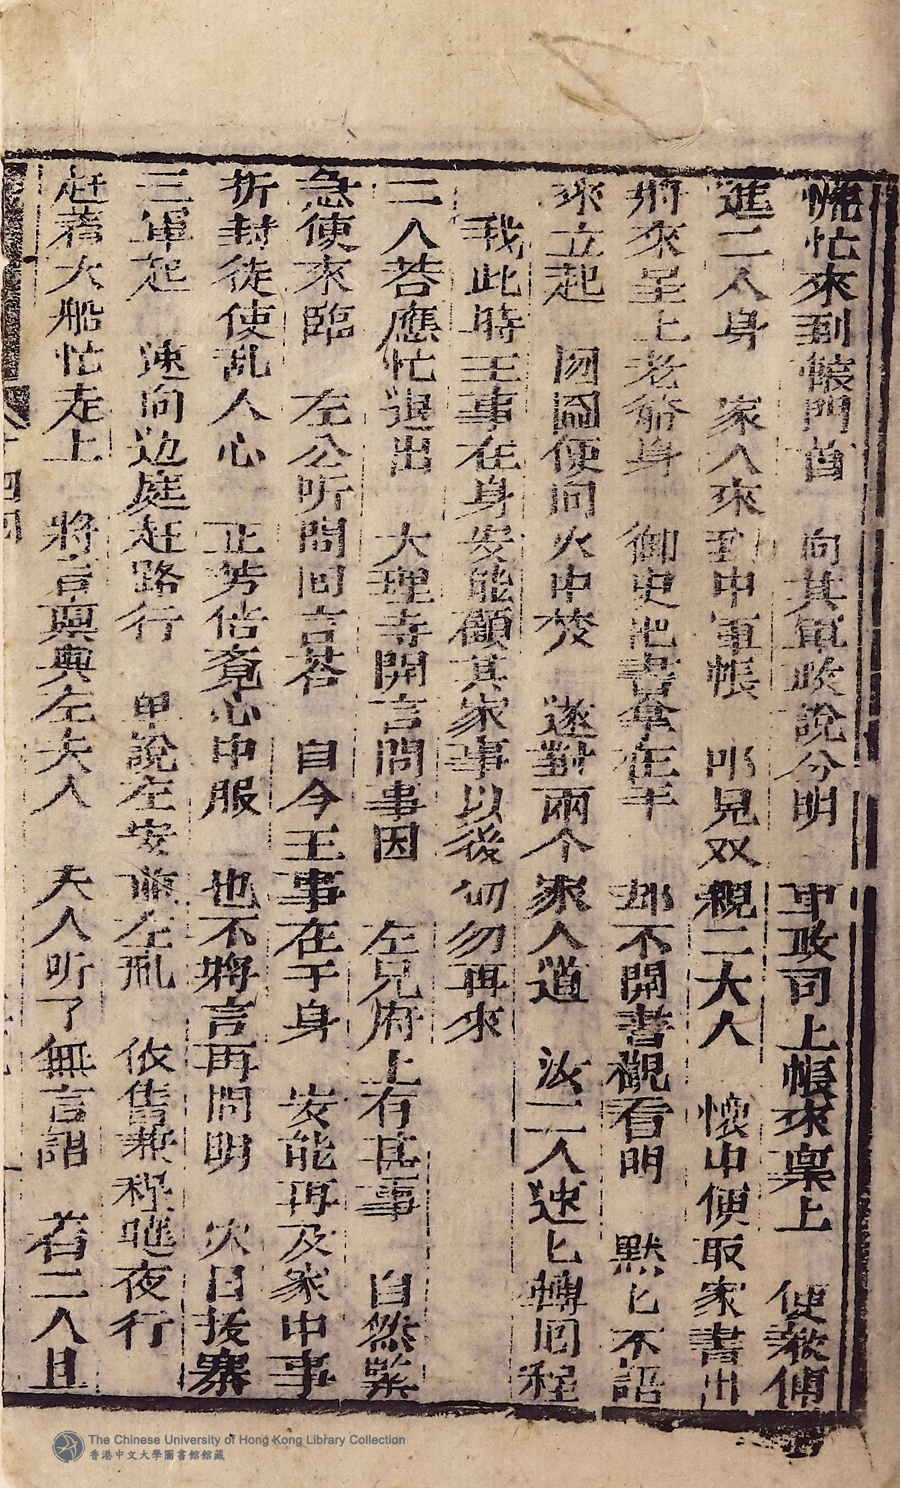 慌忙來到帳門首　向其軍政說分明　軍政司上帳來稟上　使教傳
進二人身　家人來到中軍帳　叩見双親二大人　懷中便取家書出
將來呈上老爺身　御史把書拿在手　却不開書觀看明　默匕不語
來立起　囫圇便向火中焚　遂對兩个家人道　汝二人速匕轉回程
我此時王事在身安能顧其家事以後切勿再來
二人荅應忙退出　大理寺開言問事因　左兄府上有其事　自然緊
急使來臨　左公听問回言荅　自今王事在于身　安能再及家中事
折封徒使乱人心　正芳佸竟心中服　也不將言再問明　次日拔寨
三軍起　速向边庭赶路行　單說左安兼左彪　依旧兼程曉夜行
赶着大船忙走上　將言稟與左夫人　夫人听了無言語　着二人且
十四回
The Chinese University of Hong Kong Library Collection
香港中文大學圖書館館藏